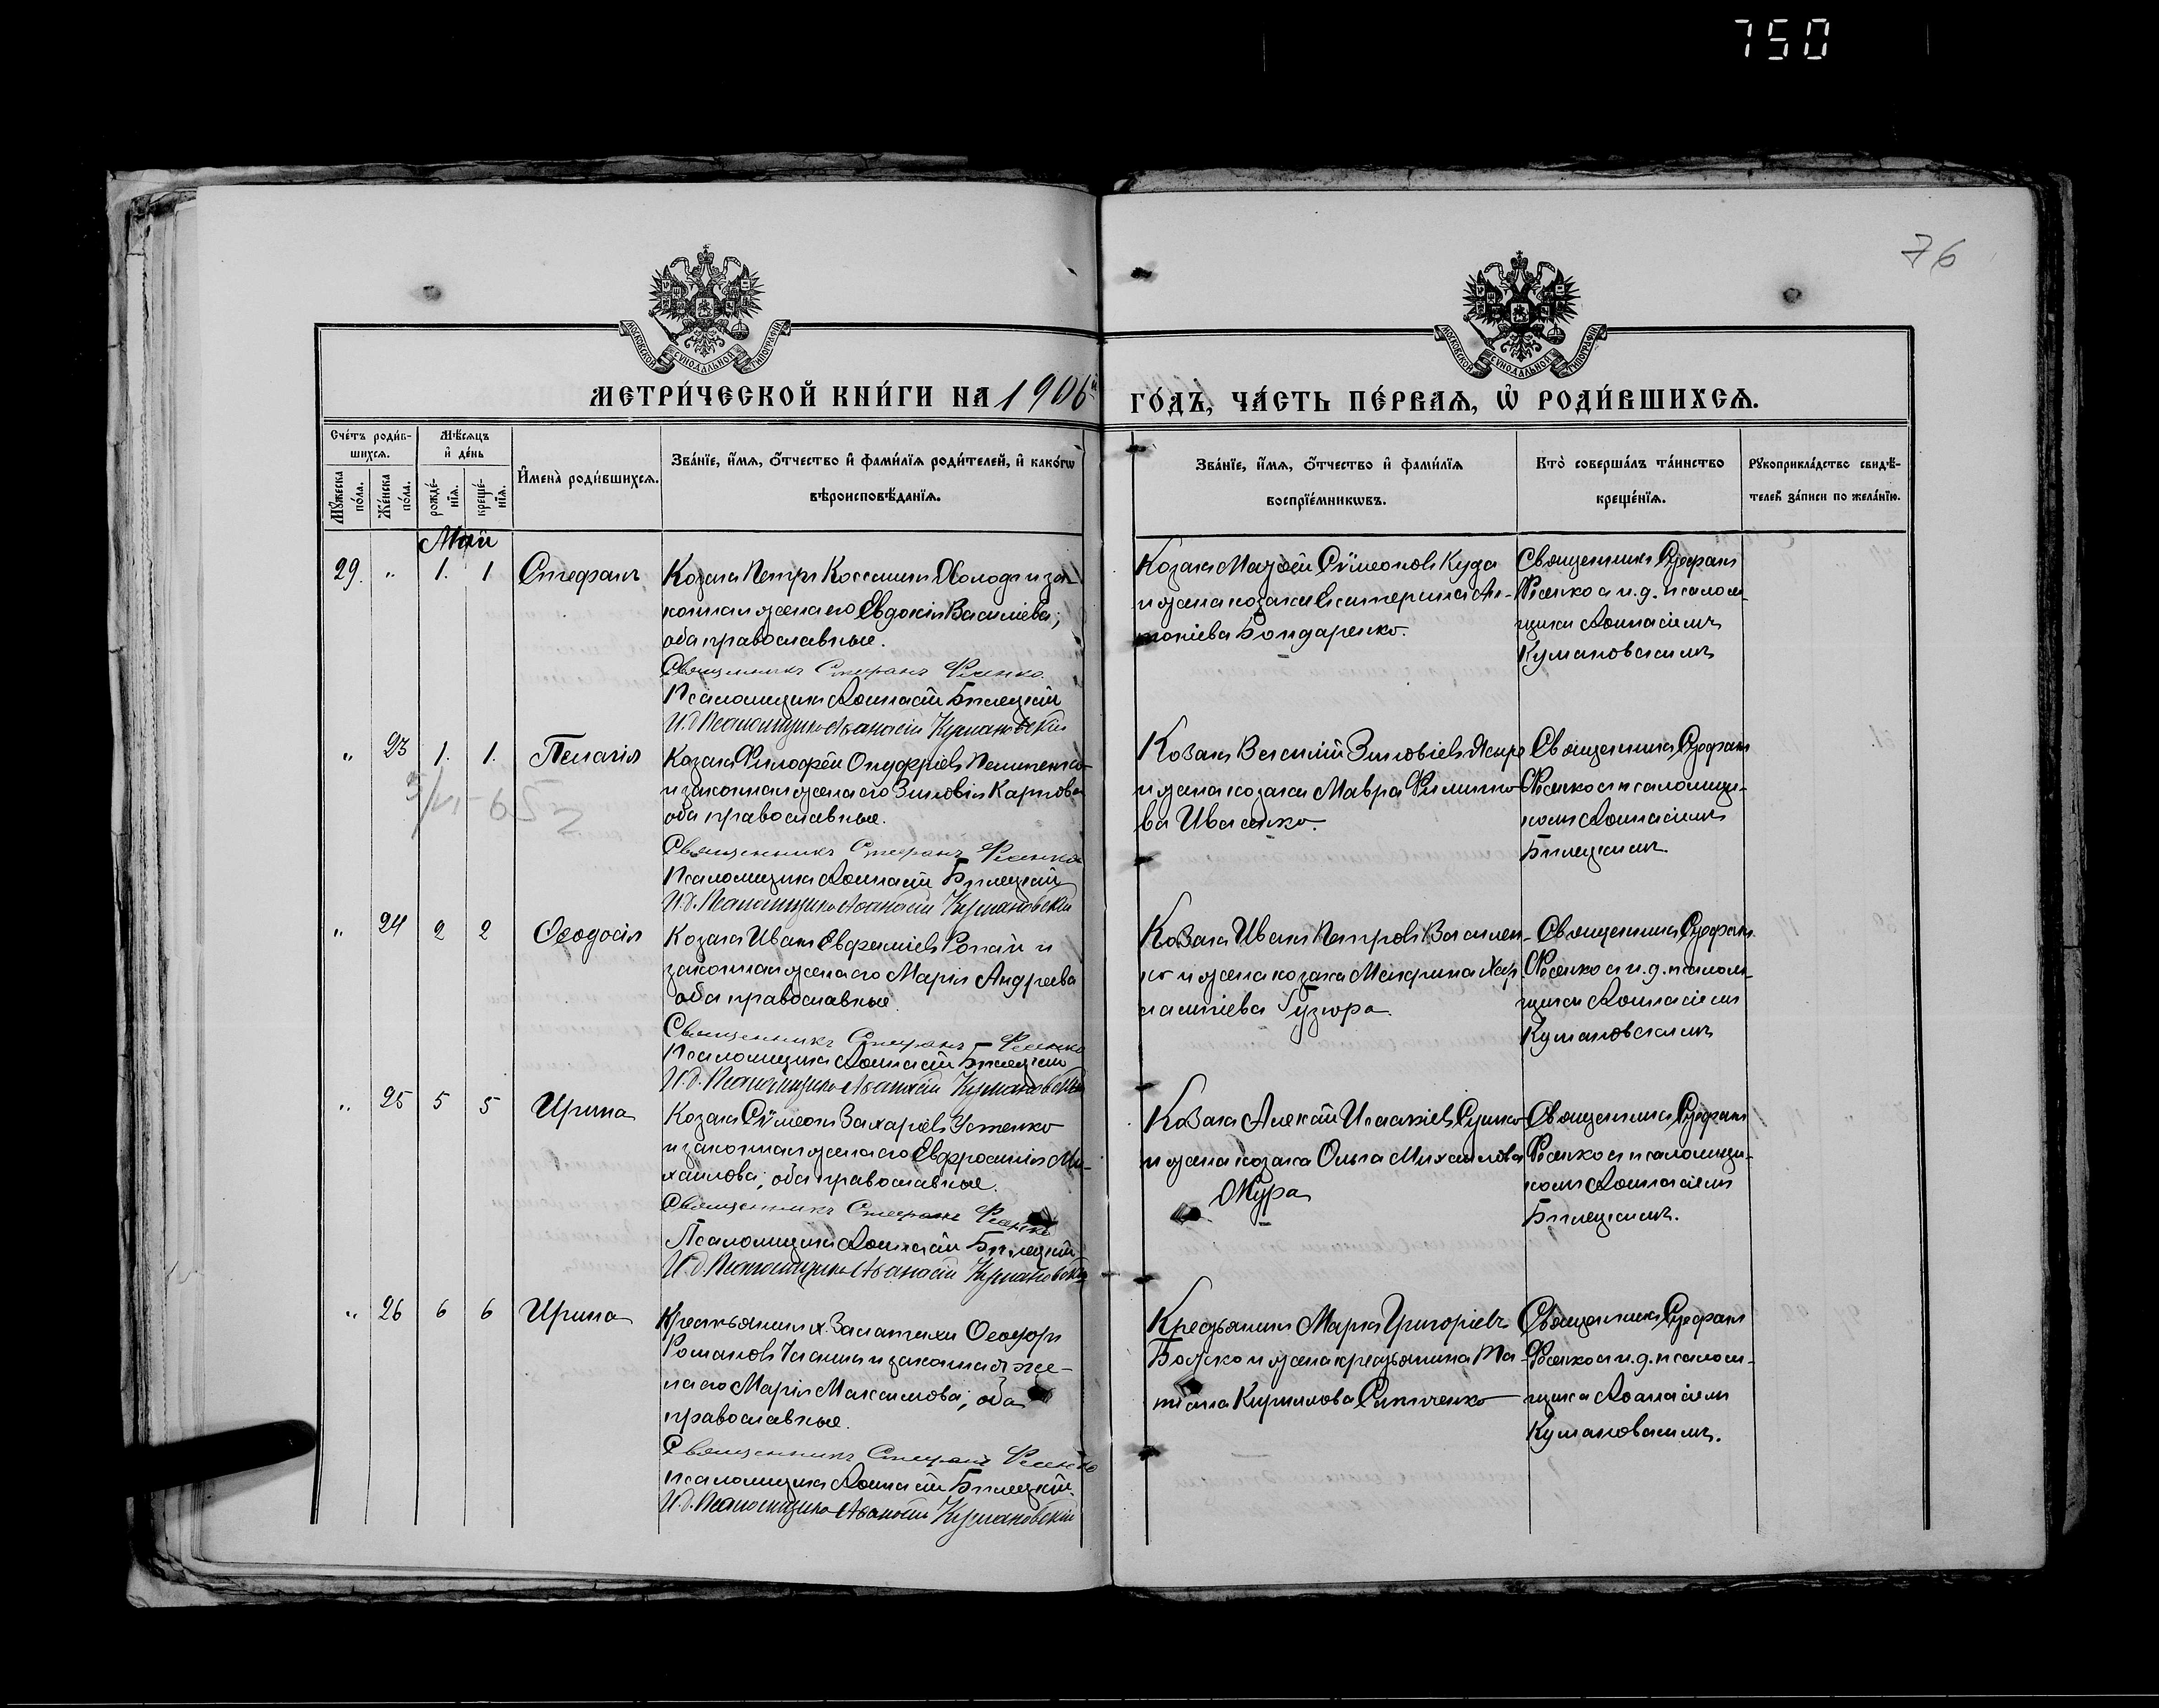 750
76
МОСКОВСКОЙ СѴНОДАЛЬНОЙ ТИПОГРАФІИ
МОСКОВСКОЙ СѴНОДАЛЬНОЙ ТИПОГРАФІИ
МЕТРИ́ЧЕСКОЙ КНИ́ГИ НА 1906й
ГО́ДЪ, ЧА́СТЬ ПЕ́РВАѦ, Ѡ҆ РОДИ́ВШИХСѦ.
Сче́тъ роди́в-
шихсѧ.
Мꙋ́жеска по́ла.
Же́нска по́ла.
Мѣ́сѧцъ
и҆ де́нь
рожде́-
нїѧ.
креще́-
нїѧ.
И҆мена̀ роди́вшихсѧ.
Зва́нїе, и҆́мѧ, ѻ҆́тчество и҆ фами́лїѧ роди́телей, и҆ како́гѡ
вѣроисповѣ́данїѧ.
Зва́нїе, и҆́мѧ, ѻ҆́тчество и҆ фами́лїѧ
воспрїе́мникѡвъ.
Кто̀ соверша́лъ та́инство
креще́нїѧ.
Рꙋкоприкла́дство свидѣ́-
телей за́писи по жела́нїю.
Май
29. " 1. 1 Стефанъ
Козакъ Петръ Косминъ Холодъ и за-
конная жена его Евдокія Василіева;
оба православные.
Священникъ Стефанъ Фесенко
Псаломщикъ Аѳанасій Билецкій
И.д. Псаломщика Аѳанасій Кумановскій
Козакъ Матѳей Сѵмеоновъ Куда
и жена козака Екатерина Ан-
тоніева Бондаренко.
Священникъ Стефанъ
Фесенко и и.д. псалом-
щика Аѳанасіемъ
Кумановскимъ
" 23 1. 1. Пелагія
Козакъ Филоѳей Онуфріевъ
и законная жена его Зиновія Карпова
оба православные.
Священникъ Стефанъ Фесенко
Псаломщикъ Аѳанасій Билецкій
И.д. Псаломщика Аѳанасій Кумановскій
Козакъ Василій Зиновіевъ
и жена козака Мавра Филиппо-
ва Иваненко.
Священникъ Стефанъ
Фесенко и псаломщи-
комъ Аѳанасіемъ
Билецкимъ
" 24 2 2 Ѳеодосія
Козакъ Иванъ Евфиміевъ Ропай и
законная жена его Марія Андреева
оба православные
Священникъ Стефанъ Фесенко
Псаломщикъ Аѳанасій Билецкій
И.д. Псаломщика Аѳанасій Кумановскій
Козакъ Иванъ Петровъ Василен-
ко и жена козака Макрина Хар-
лампіева
Священникъ Стефанъ
Фесенко и и.д. псалом-
щика Аѳанасіемъ
Кумановскимъ
" 25 5 5 Ирина
Козакъ Сѵмеонъ Захаріевъ Устенко
и законная жена его Евфросинія Ми-
хаилова; оба православные.
Священникъ Стефанъ Фесенко
Псаломщикъ Аѳанасій Билецкій
И.д. Псаломщика Аѳанасій Кумановскій
Козакъ Алексій Игнатіевъ
и жена козака Ольга Михаилова
Жура
Священникъ Стефанъ
Фесенко и псаломщи-
комъ Аѳанасіемъ
Билецкимъ.
" 26 6 6 Ирина
Крестьянинъ х. Ѳеодоръ
Романовъ и законная же-
на его Марія Максимова; оба
православные.
Священникъ Стефанъ Фесенко
Псаломщикъ Аѳанасій Билецкій.
И.д. Псаломщика Аѳанасій Кумановскій
Крестьянинъ Марко Григоріевъ
Божко и жена крестьянина Та-
тіана Кириллова
Священникъ Стефанъ
Фесенко и и.д. псалом-
щика Аѳанасіемъ
Кумановскимъ.